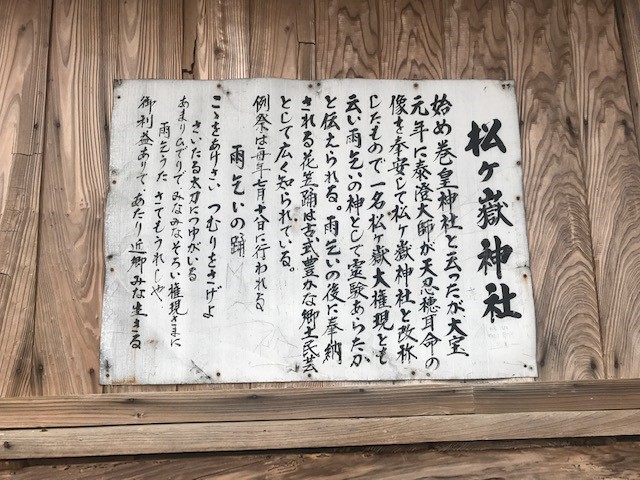 松ヶ嶽神社
始め巻皇神社と云ったが大宝
元年に泰澄大師が天忍穂耳命の
像を奉安して松ヶ嶽神社と改称
したもので一名松ヶ嶽大権現とも
云い雨乞いの神として霊験あらたか
と伝えられる。雨乞いの後に奉納
される花笠踊は古式豊かな郷土民芸
として広く知られている。
例祭は毎年七月十八日に行われる
雨乞いの踊
こゝをあけさい つむりをさげよ
さいたる太刀につゆがいる
あまりひでりで、みなみなそろい権現さまに
雨乞うた さてもうれしや、
御利益ありて、あたり近郷みな生きる